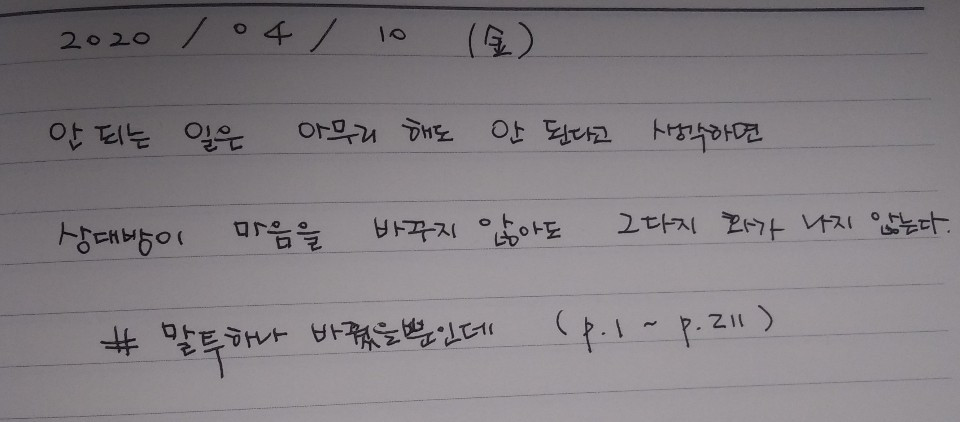 2020 / 04 / 10 (金)
안 되는 일은 아무리 해도 안 된다고 생각하면
상대방이 마음을 바꾸지 않아도 그다지 화가 나지 않는다.
# 말투하나 바꿨을뿐인데 (p.1 ~ p.211)